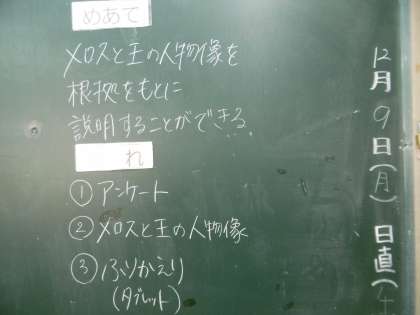 めあて
メロスと王の人物像を
根拠をもとに
説明することができる。
れ
① アンケート
② メロスと王の人物像
③ ふりかえり
(タブレット)
12月9日(月) 日直(